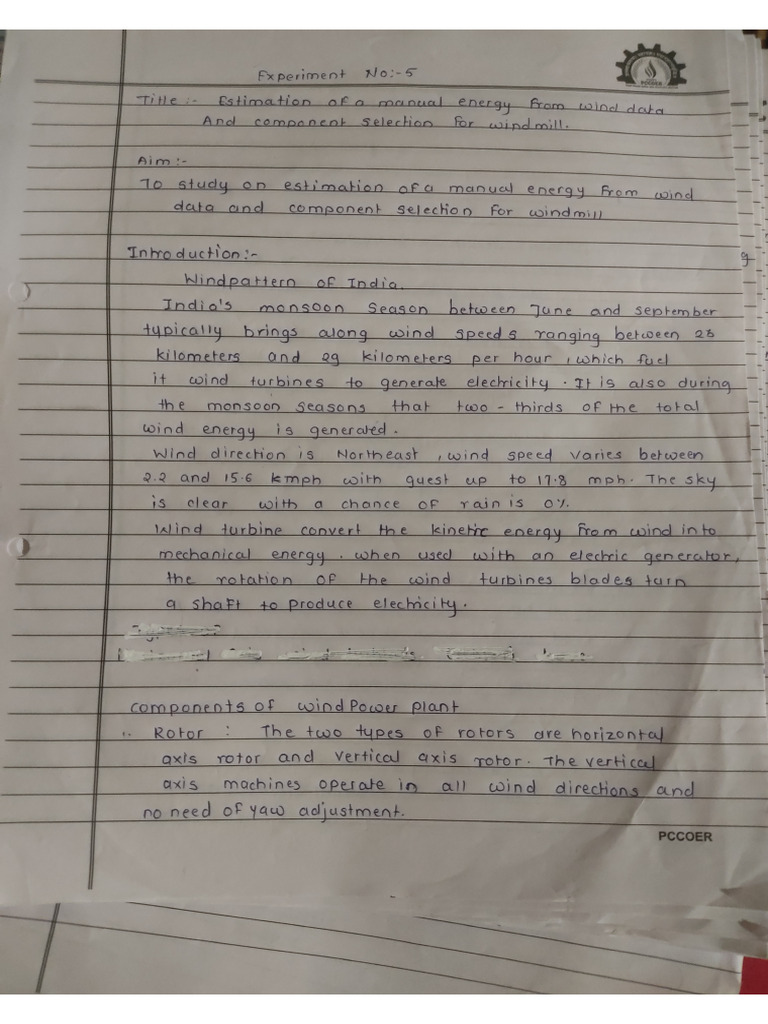 Experiment No:-5
PCCOER
Title :- Estimation of a manual energy from wind data
And component selection for windmill.
Aim :-
To study on estimation of a manual energy from wind
data and component selection for windmill
Introduction:-
Windpattern of India.
India's monsoon season between June and september
typically brings along wind speeds ranging between 25
kilometers and 29 kilometers per hour, which fuel
it wind turbines to generate electricity. It is also during
the monsoon seasons that two-thirds of the total
wind energy is generated.
Wind direction is Northeast, wind speed varies between
2.2 and 15.6 kmph with guest up to 17.8 mph. The sky
is clear with a chance of rain is 0%.
Wind turbine convert the kinetic energy from wind into
mechanical energy. when used with an electric generator,
the rotation of the wind turbines blades turn
a shaft to produce electricity.
components of wind Power plant
1. Rotor : The two types of rotors are horizontal
axis rotor and vertical axis rotor. The vertical
axis machines operate in all wind directions and
no need of yaw adjustment.
PCCOER